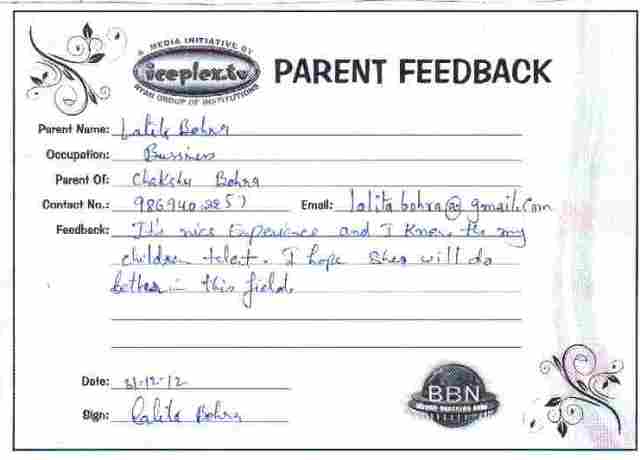 A MEDIA INITIATIVE BY
iceplex.tv
RYAN GROUP OF INSTITUTIONS
PARENT FEEDBACK
Parent Name: Lalita Bohra
Occupation: Bussiness
Parent Of: Chakshu Bohra
Contact No.: Email: lalita.bohra@gmail.com
Feedback: It's nice Experience and I know the my
children telent. I hope shes will do
better in this field.
Date: 31-12-12
Sign: Lalita Bohra
BBN